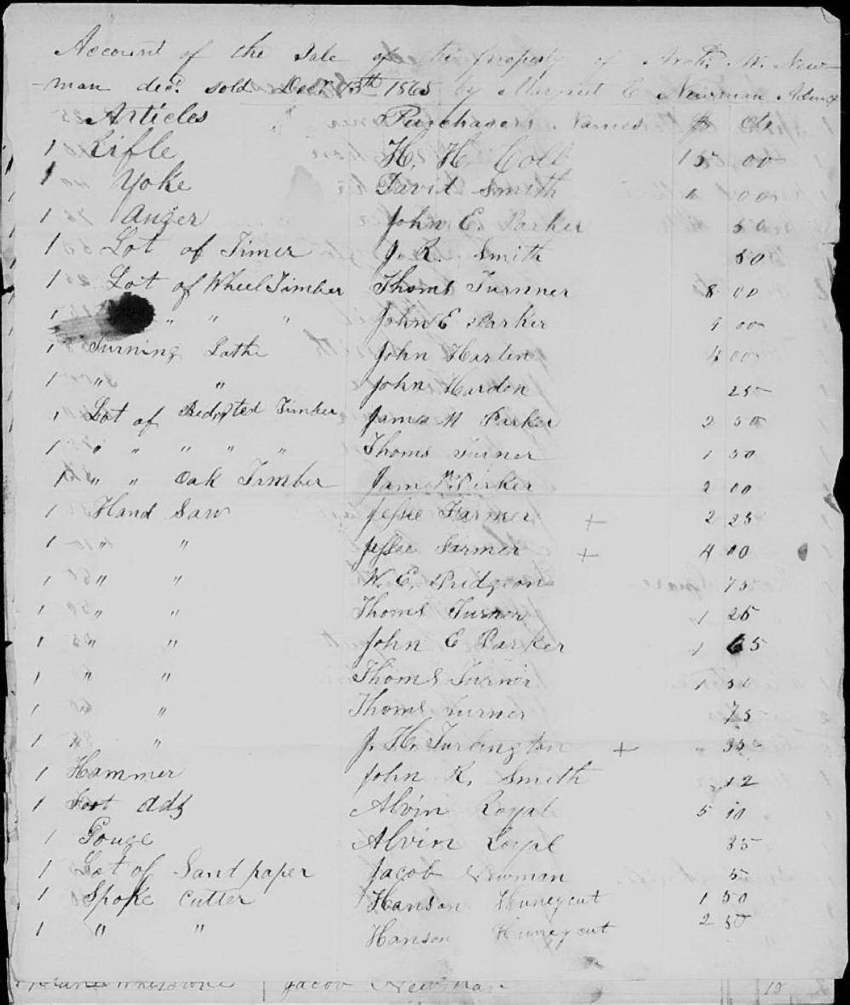 Account of the Sale of the property of M. New-
-man decd. sold Decr. 13th 1865 by Margret E Newman Admx
Articles Purchasers Names $ Cts
1 Rifle H. H. Colb 15 00
1 Yoke David Smith 00
1 Auger John E. Parker 50
1 Lot of Timer J. R. Smith 50
1 Lot of Wheel Timber Thoms Turnner 8 00
1 " " " John E Parker 1 00
1 Turning Lathe John Harlen 4 00
1 " " John Hardon 25
1 Lot of Timber James M Parker 2 50
1 " " " " Thoms Turner 1 50
1 " " Oak Timber Jam M. Perker 2 00
1 Hand Saw Jesse Farmer + 2 25
1 " " Jesse Farmer + 4 00
1 " " W. E. Pridgeon 75
1 " " Thoms Turner 1 25
1 " " John E Parker 1 65
1 " " Thoms Turner 1 50
1 " " Thoms Turner 75
1 " " J. H. Turlington + " 35
1 Hammer John R. Smith 12
1 Foot Adz Alvin Royal 5 10
1 Gouge Alvin Royal 35
1 Lot of Sant paper Jacob Newman 5
1 Spoke Cutter Hanson Huneycut 1 50
1 " " Hanson Huneycut 2 50
Whetstone Jacob Newman 10